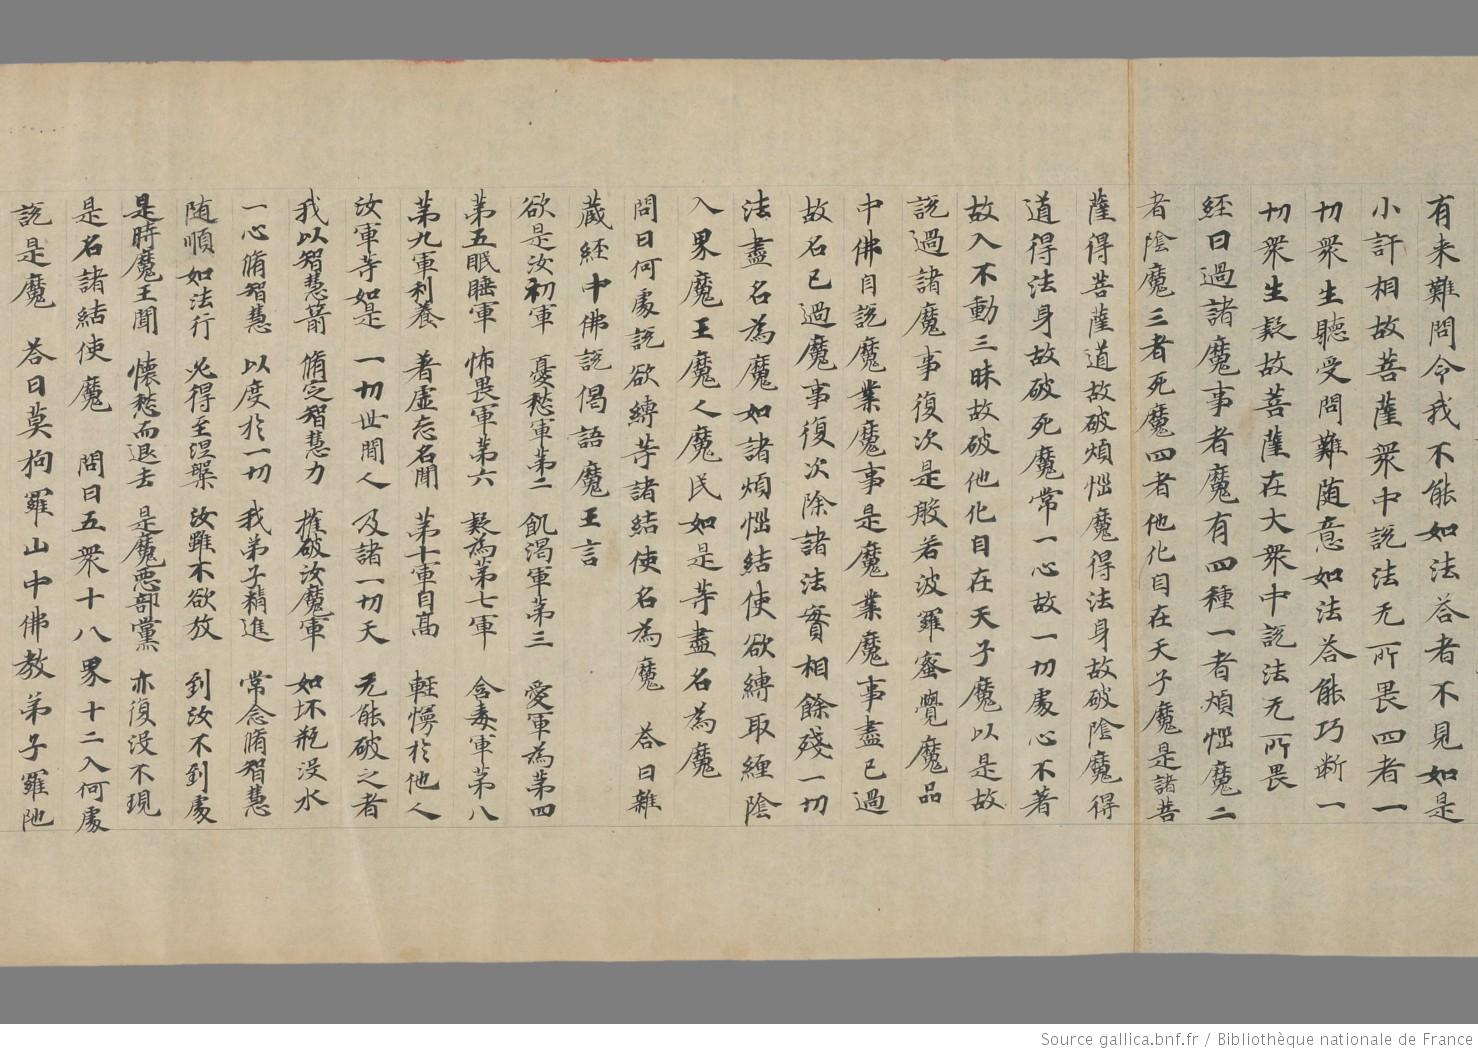 有来難問令我不能如法荅者不見如是
小許相故菩薩衆中說法无所畏四者一
切衆生聽受問難随意如法荅能巧断一
切衆生疑故菩薩在大衆中說法无所畏
經曰過諸魔事者魔有四種一者煩惱魔二
者陰魔三者死魔四者他化自在天子魔是諸菩
薩得菩薩道故破煩惱魔得法身故破陰魔得
道得法身故破死魔常一心故一切處心不著
故入不動三昧故破他化自在天子魔以是故
說過諸魔事復次是般若波羅蜜覺魔品
中佛自說魔業魔事是魔業魔事盡已過
故名已過魔事復次除諸法實相餘殘一切
法盡名為魔如諸煩惱結使欲縛取纏陰
入界魔王魔人魔民如是等盡名為魔
問曰何處說欲縛等諸結使名為魔 荅曰雜
蔵經中佛說偈語魔王言
欲是汝初軍 憂愁軍第二 飢渴軍第三 愛軍為第四
第五眠睡軍 怖畏軍第六 疑為第七軍 含毒軍第八
第九軍利養 著虛忘名聞 第十軍自高 輕慢於他人
汝軍等如是 一切世間人 及諸一切天 无能破之者
我以智慧箭 脩定智慧力 摧破汝魔軍 如坏瓶没水
一心脩智慧 以度於一切 我弟子精進 常念脩智慧
随順如法行 必得至涅槃 汝雖不欲放 到汝不到處
是時魔王聞 懷愁而退去 是魔悪部黨 亦復没不現
是名諸結使魔 問曰五衆十八界十二入何處
說是魔 荅曰莫拘羅山中佛教弟子羅陁
Source gallica.bnf.fr / Bibliothèque nationale de France